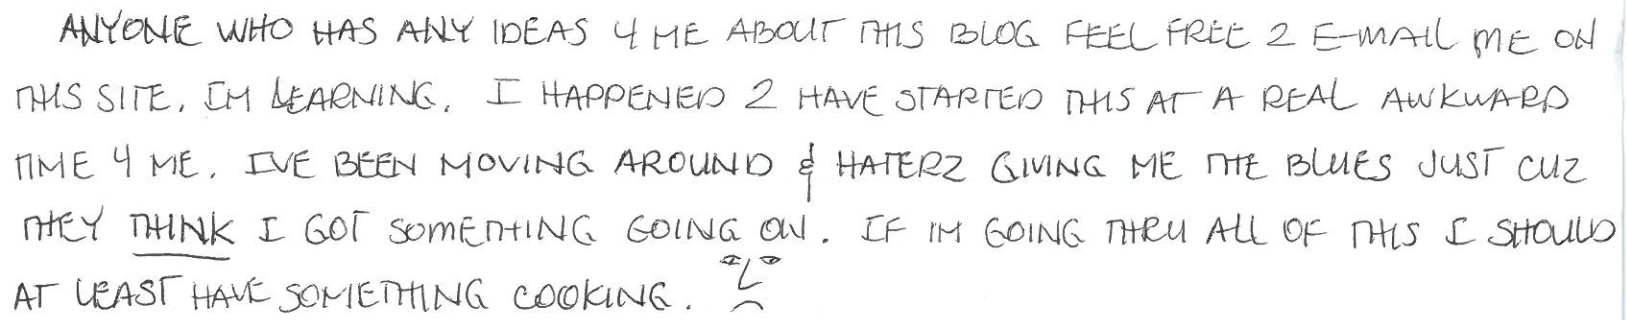 ANYONE WHO HAS ANY IDEAS 4 ME ABOUT THIS BLOG FEEL FREE 2 E-MAIL ME ON
THIS SITE. IM LEARNING. I HAPPENED 2 HAVE STARTED THIS AT A REAL AWKWARD
TIME 4 ME. IVE BEEN MOVING AROUND & HATERZ GIVING ME THE BLUES JUST CUZ
THEY THINK I GOT SOMETHING GOING ON. IF IM GOING THRU ALL OF THIS I SHOULD
AT LEAST HAVE SOMETHING COOKING.